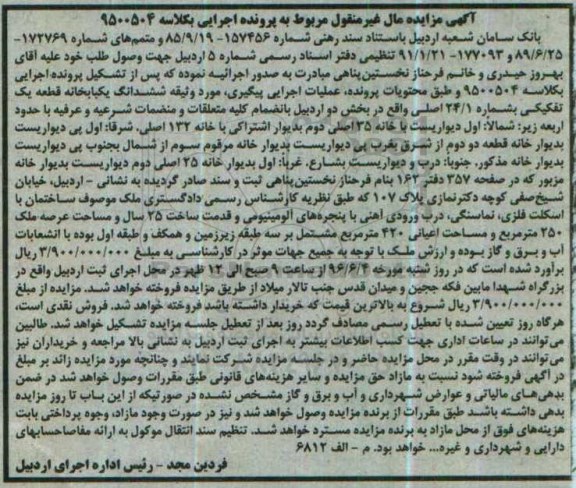 آگهی مزایده مال غیرمنقول مربوط به پرونده اجرایی بکلاسه ۹۵۰۰۵۰۴
بانک سامان شعبه اردبیل باستناد سند رهنی شماره ۱۵۷۴۵۶- ۸۵/۹/۱۹ و متمم‌های شماره ۱۷۲۷۶۹-
۸۹/۶/۲۵ و ۱۷۷۰۹۳- ۹۱/۱/۲۱ تنظیمی دفتر اسناد رسمی شماره ۵ اردبیل جهت وصول طلب خود علیه آقای
بهروز حیدری و خانم فرحناز نخستین‌پناهی مبادرت به صدور اجرائیه نموده که پس از تشکیل پرونده اجرایی
بکلاسه ۹۵۰۰۵۰۴ و طبق محتویات پرونده، عملیات اجرایی پیگیری، مورد وثیقه ششدانگ یکبابخانه قطعه یک
تفکیکی بشماره ۲۴/۱ اصلی واقع در بخش دو اردبیل بانضمام کلیه متعلقات و منضمات شرعیه و عرفیه با حدود
اربعه زیر: شمالاً: اول دیواریست با خانه ۳۵ اصلی دوم بدیوار اشتراکی با خانه ۱۳۲ اصلی. شرقاً: اول پی دیواریست
بدیوار خانه قطعه دو دوم از شرق بغرب پی دیواریست بدیوار خانه مرقوم سوم از شمال بجنوب پی دیواریست
بدیوار خانه مذکور، جنوباً: درب و دیواریست بشارع، غرباً: اول بدیوار خانه ۲۵ اصلی دوم دیواریست بدیوار خانه
مزبور که در صفحه ۳۵۷ دفتر ۱۶۲ بنام فرحناز نخستین‌پناهی ثبت و سند صادر گردیده به نشانی - اردبیل، خیابان
شیخ‌صفی کوچه دکترنمازی پلاک ۱۰۷ که طبق نظریه کارشناس رسمی دادگستری ملک موصوف ساختمان با
اسکلت فلزی، نماسنگی، درب ورودی آهنی با پنجره‌های آلومینیومی و قدمت ساخت ۲۵ سال و مساحت عرصه ملک
۲۵۰ مترمربع و مساحت اعیانی ۴۲۰ مترمربع مشتمل بر سه طبقه زیرزمین و همکف و طبقه اول بوده با انشعابات
آب و برق و گاز بوده و ارزش ملک با توجه به جمیع جهات موثر در کارشناسی به مبلغ ۳/۹۰۰/۰۰۰/۰۰۰ ریال
برآورد شده است که در روز شنبه مورخه ۹۶/۶/۴ از ساعت ۹ صبح الی ۱۲ ظهر در محل اجرای ثبت اردبیل واقع در
بزرگراه شهدا مابین فکه ججین و میدان قدس جنب تالار میلاد از طریق مزایده فروخته خواهد شد. مزایده از مبلغ
۳/۹۰۰/۰۰۰/۰۰۰ ریال شروع به بالاترین قیمت که خریدار داشته باشد فروخته خواهد شد. فروش نقدی است،
هرگاه روز تعیین شده با تعطیل رسمی مصادف گردد روز بعد از تعطیل جلسه مزایده تشکیل خواهد شد. طالبین
می‌توانند در ساعات اداری جهت کسب اطلاعات بیشتر به اجرای ثبت اردبیل به نشانی بالا مراجعه و خریداران نیز
می‌توانند در وقت مقرر در محل مزایده حاضر و در جلسه مزایده شرکت نمایند و چنانچه مورد مزایده زائد بر مبلغ
در آگهی فروخته شود نسبت به مازاد حق مزایده و سایر هزینه‌های قانونی طبق مقررات وصول خواهد شد در ضمن
بدهی‌های مالیاتی و عوارض شهرداری و آب و برق و گاز مشخص نشده در صورتیکه از این باب تا روز مزایده
بدهی داشته باشد طبق مقررات از برنده مزایده وصول خواهد شد و نیز در صورت وجود مازاد، وجوه پرداختی بابت
هزینه‌های فوق از محل مازاد به برنده مزایده مسترد خواهد شد. تنظیم سند انتقال موکول به ارائه مفاصاحسابهای
دارایی و شهرداری و غیره... خواهد بود. م - الف ۶۸۱۲
فردین مجد - رئیس اداره اجرای اردبیل